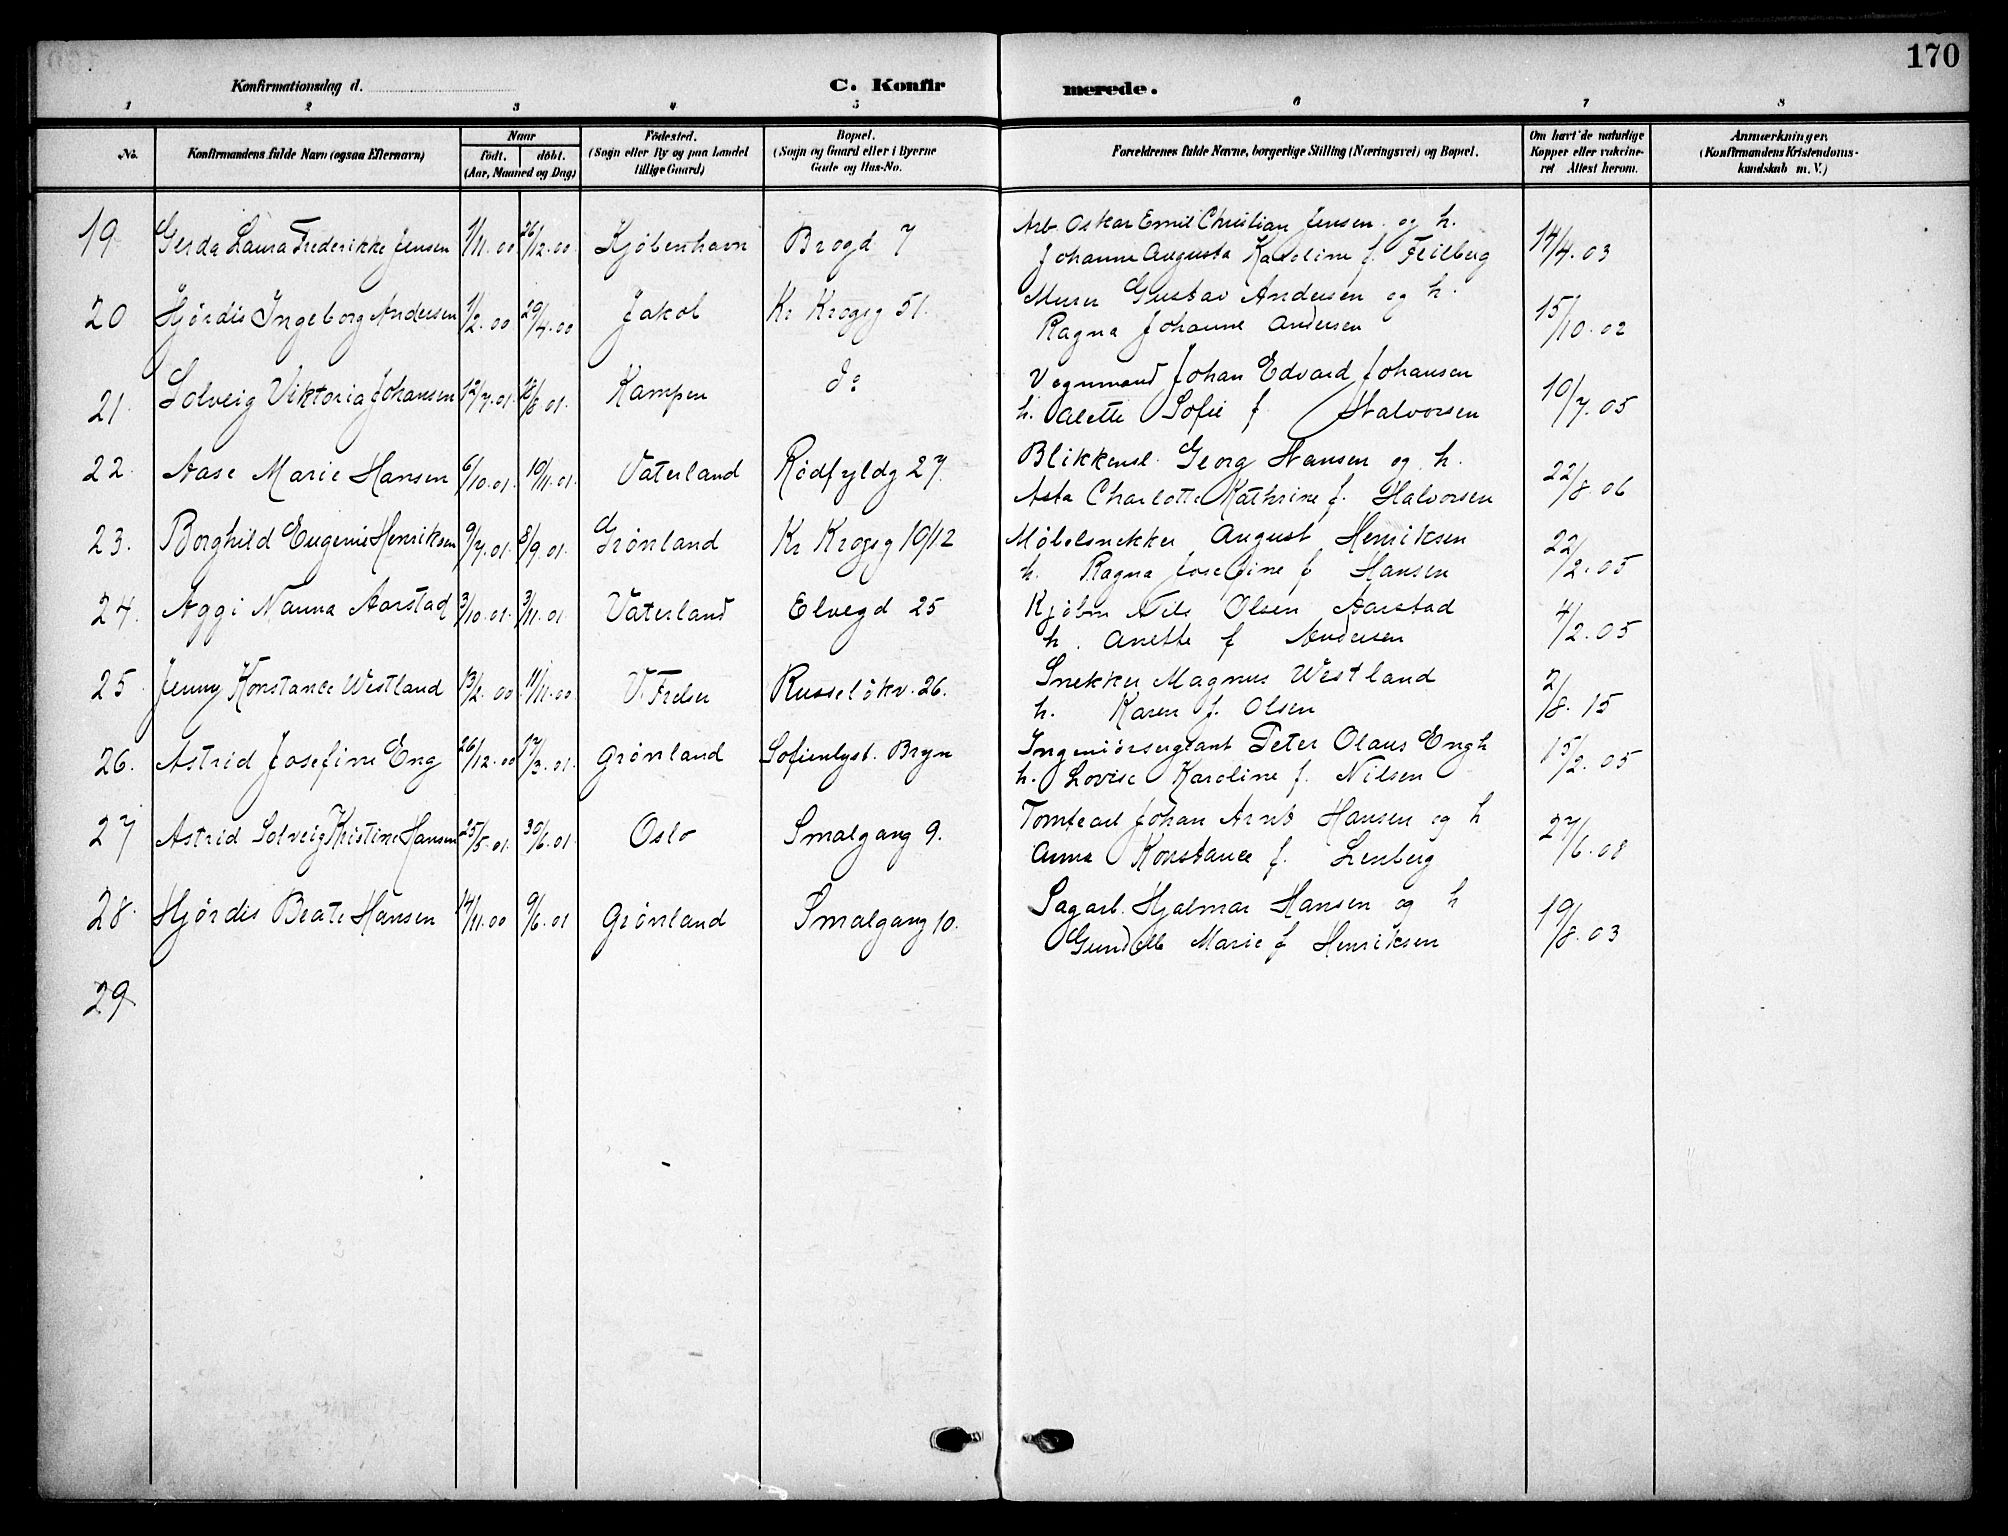 170
Konfirmationsdag d.
C. Konfirmerede.
1 2 3 4 5 6 7 8
No.
Konfirmandens fulde Navn (ogsaa Efternavn)
Naar
født. døbt.
(Aar, Maaned og Dag)
Fødested.
(Sogn eller By og paa Landet
tillige Gaard)
Bopæl.
(Sogn og Gaard eller i Byerne
Gade og Hus-No.
Forældrenes fulde Navne, borgerlige Stilling (Næringsvei) og Bopæl.
Om havt de naturlige
Kopper eller vakcine-
ret Attest herom.
Anmærkninger.
(Konfirmandens Kristendoms-
kundskab m. V.)
19 Gerda Laura Frederikke Jensen 1/11.00 26/12.00 Kjøbenhavn Brogd 7 Arb. Oskar Emil Christian Jensen og h. 14/4.03
Johanne Augusta Karoline f. Feilberg
20 Hjørdis Ingeborg Andersen 1/2.00 29/4.00 Jakob Kr Krogsg 51. Murer Gustav Andersen og h. 15/10.02
Ragna Johanne Andersen
21. Solveig Viktoria Johansen 12/7.01. Kampen do Vognmand Johan Edvard Johansen 10/7.05
h. Alette Sofie f Halvorsen
22. Aase Marie Hansen 6/10.01. 10/11.01. Vaterland Rødfyldg 27. Blikkensl. Georg Hansen og h. 22/8.06
Asta Charlotte Kathrine f. Halvorsen
23. Borghild Eugenie Henriksen 9/7.01. 8/9.01. Grønland Kr Krogsg 10/12 Møbelsnekker August Henriksen 22/2.05
h. Ragna Josefine f Hansen
24. Aggi Nanna Aarstad 3/10.01. 3/11.01 Vaterland Elvegd 25 Kjøbm Nils Olsen Aarstad 4/2.05
h. Anette f Andersen
25. Jenny Konstance Westland 13/2.00. 11/11.00 V. Frelser Russeløkv. 26. Snekker Magnus Westland 2/8.15
h. Karen f. Olsen
26. Astrid Josefine Eng 26/12.00 17/3.01. Grønland Sofienlyst. Bryn Ingeniørsergiant Peter Olaus Engh 15/2.05
h. Lovise Karoline f. Nilsen
27 Astrid Solveig Kristine Hansen 25/5.01. 30/6.01. Oslo Smalgang 9. Tomtearb Johan Arnt Hansen og h 27/6.08
Anna Konstance f. Lenberg
28. Hjørdis Beate Hansen 14/11.00 9/6.01 Grønland Smalgang 10. Sagarb. Hjalmar Hansen og h 19/8.03
Marie f Henriksen
29